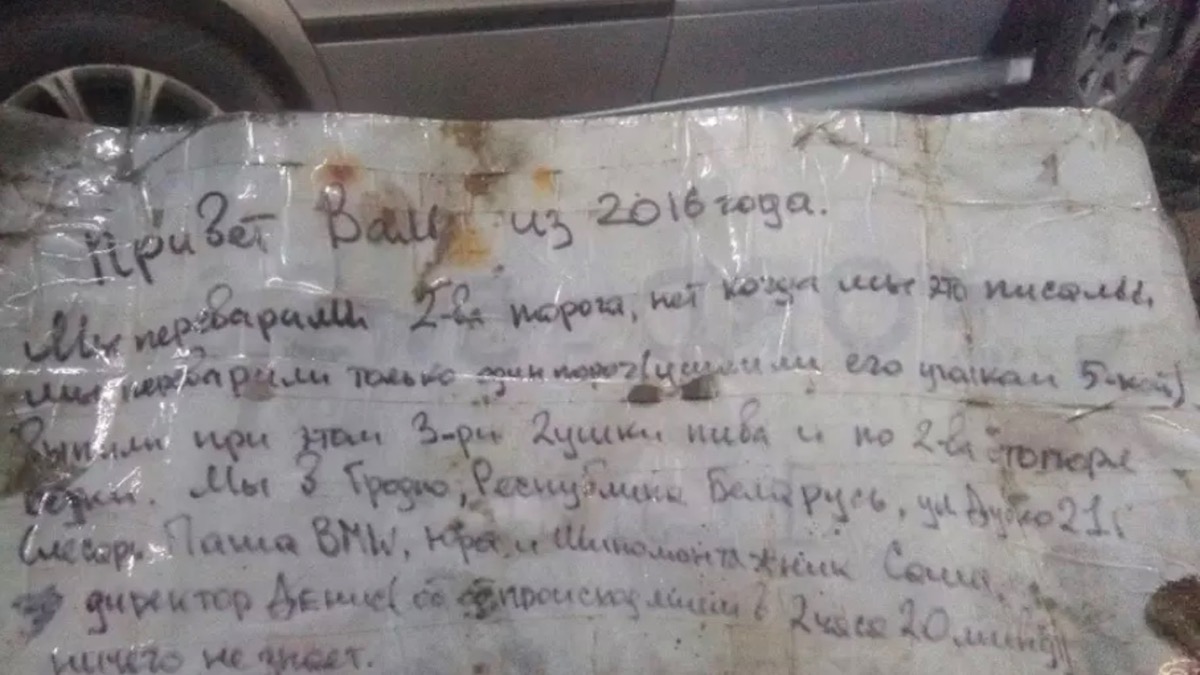 Привет Вам из 2016 года.
Мы переварили 2-ва порога, нет когда мы это писали,
мы переварили только один порог( его уголком 5-кой)
Выпили при этом 3-ри 2ушки пива и по 2-ва
водки. Мы в Гродно, Республика Беларусь, ул Дубко 21,
Слесарь Паша BMW, Юра, и Шиномонтажник Саша,
директор Денис( об происходящем в 2 часа 20 минут)
ничего не знает.